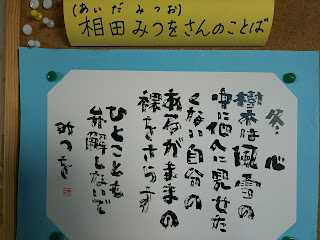 (あいだ みつお)
相田みつをさんのことば
冬心
樹木は風雪の
中に他人に見せた
くない自分の
あるがままの
裸をさらす
ひとことも
弁解しないで
みつを